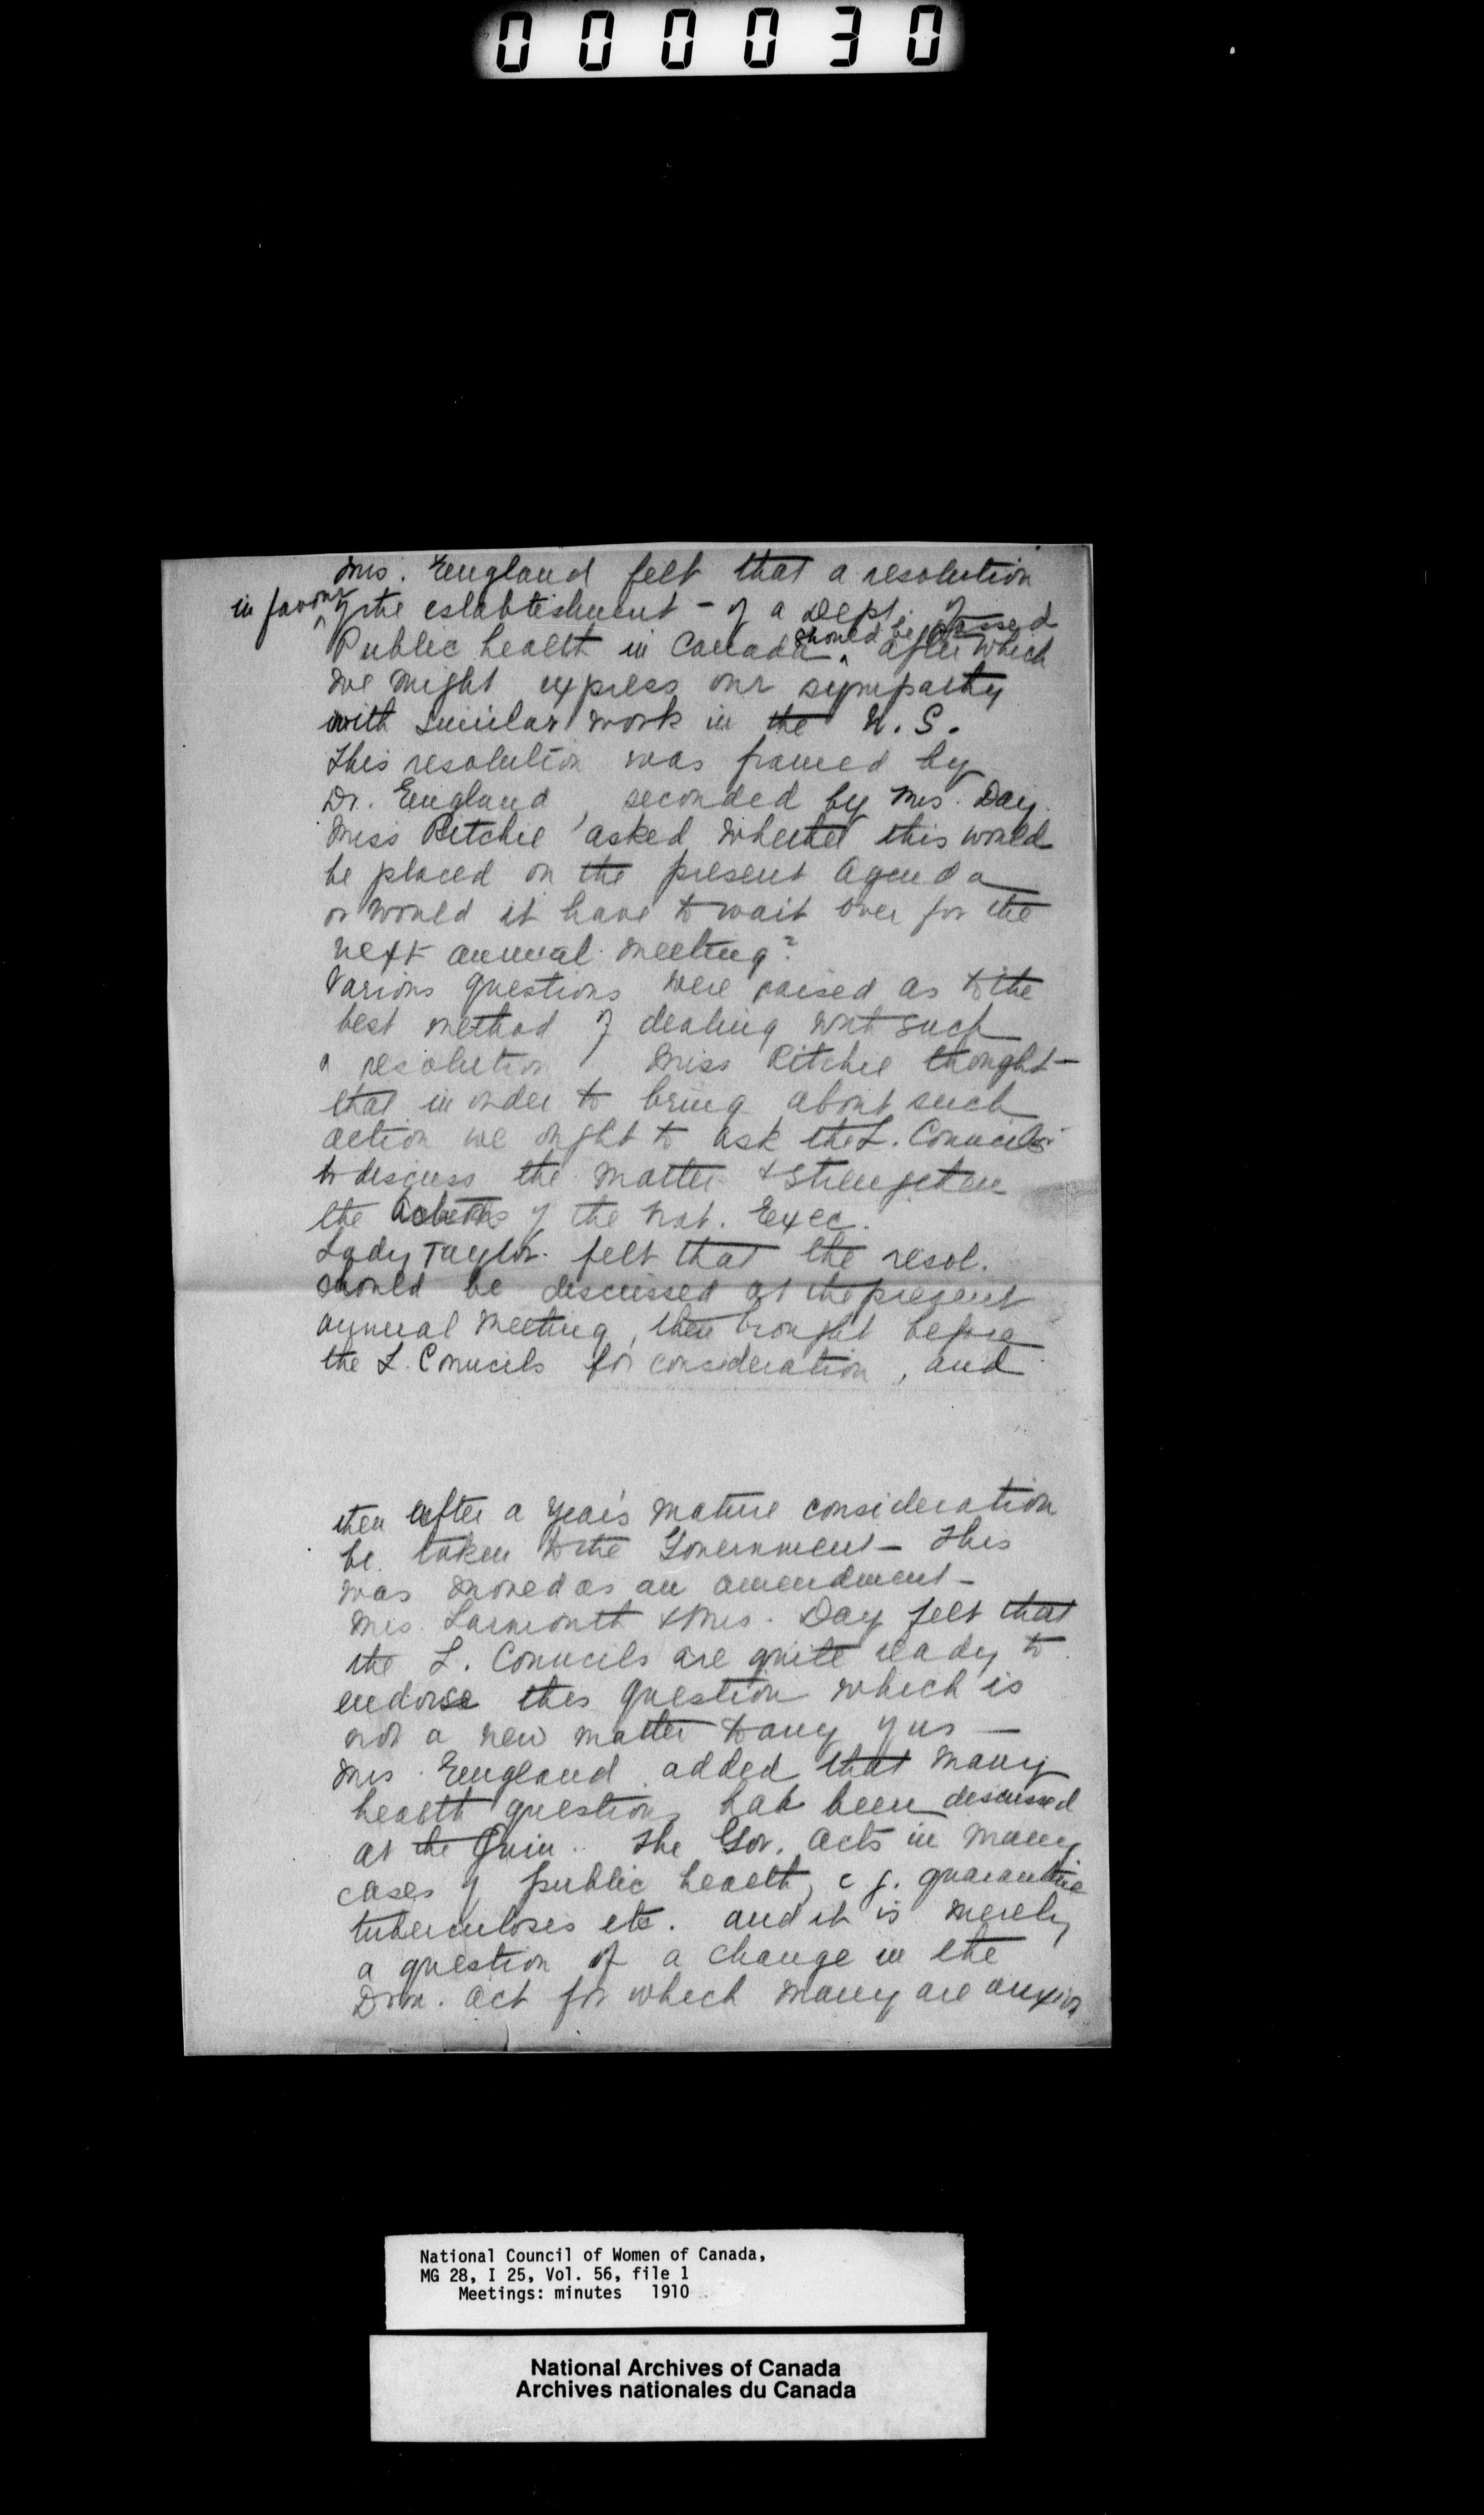 000030
Mrs. England felt that a resolution
in favour of the establishment - of a Dept. of
Public health in Canada should be passed after which
we might express our sympathy
with similar work in the U.S.
This resolution was framed by
Dr. England, seconded by Mrs. Day.
Miss Ritchie asked whether this would
be placed on the present Agenda
or would it have to wait over for the
next annual meeting?
Various questions were raised as to the
best method of dealing with such
a resolution. Miss Ritchie thought -
that in order to bring about such
action we ought to ask the L. Councils
to discuss the matter & strengthen
the actions of the Nat. Exec.
Lady Taylor felt that the resol.
should be discussed at the present
annual meeting, then brought before
the L. Councils for consideration, and
then after a year's mature consideration
be taken to the Government - This
was moved as an amendment -
Mrs. Larmonth & Mrs. Day felt that
the L. Councils are quite ready to
endorse this question which is
not a new matter to any of us -
Mrs. England added that many
health questions had been discussed
at the Quin. The Gov. acts in many
cases of public health, e.g. quarantine
tuberculosis etc. and it is merely
a question of a change in the
Dom. Act for which many are anxious
National Council of Women of Canada,
MG 28, I 25, Vol. 56, file 1
Meetings: minutes 1910
National Archives of Canada
Archives nationales du Canada